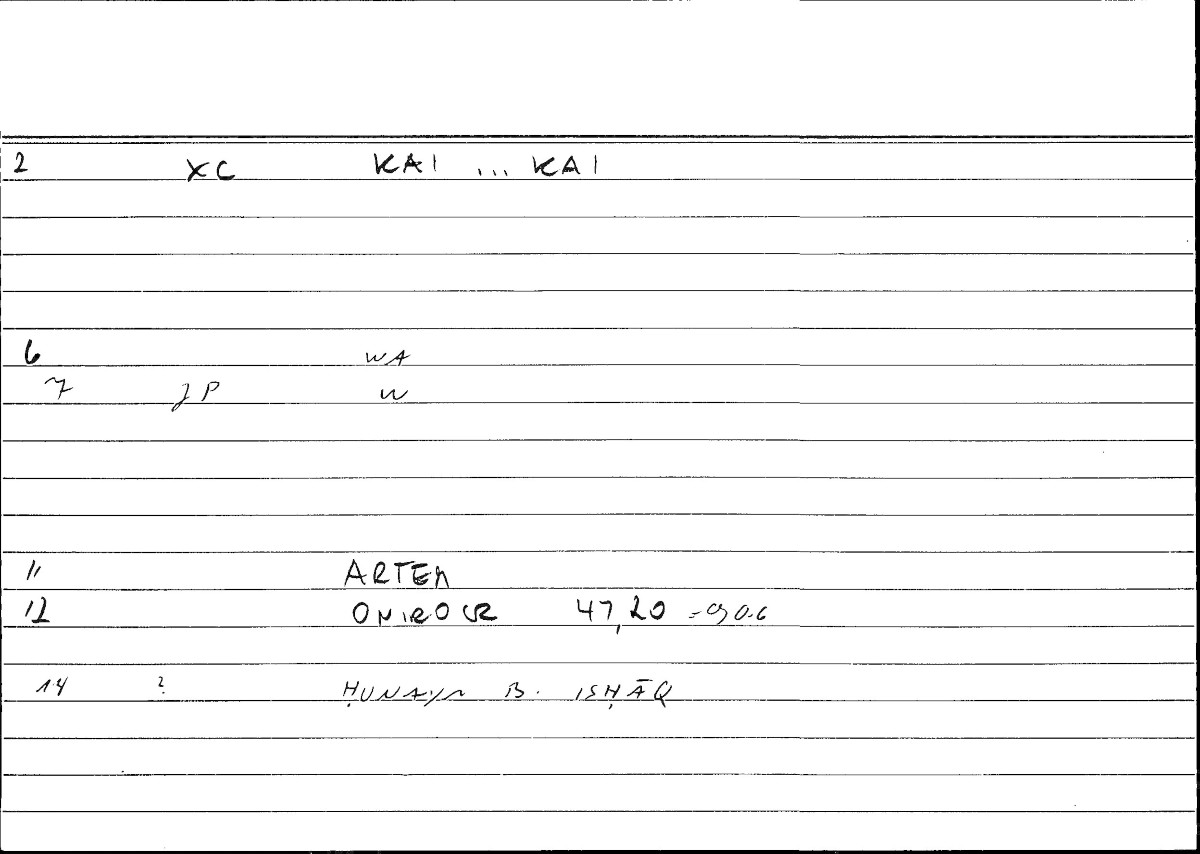 2 XC KAI ... KAI
6 WA
7 JP W
11 ARTEM
12 ONIROCR 47,20 - 90.6
14 ? ḤUNAYN B. ISḤĀQ